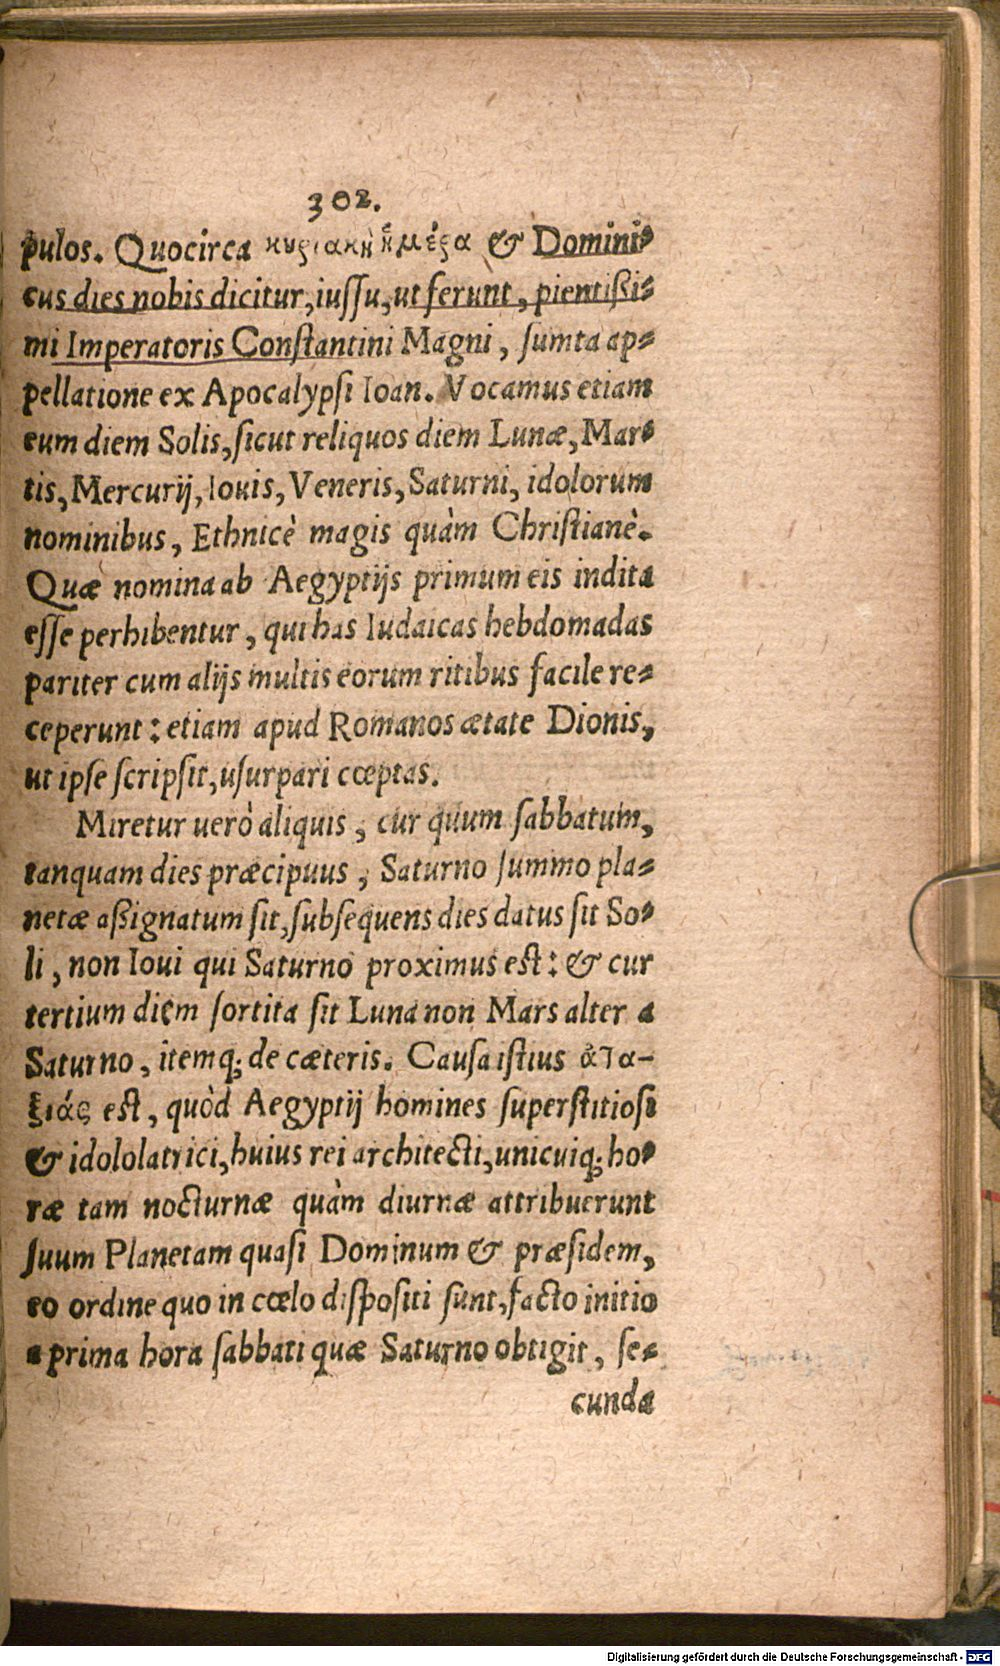 302.
pulos. Quocirca κυριακὴ ἡμέρα & Domini-
cus dies nobis dicitur, iuſſu, ut ferunt, pientißi-
mi Imperatoris Conſtantini Magni, ſumta ap-
pellatione ex Apocalypſi Ioan. Vocamus etiam
eum diem Solis, ſicut reliquos diem Lunæ, Mar-
tis, Mercurij, Iouis, Veneris, Saturni, idolorum
nominibus, Ethnicè magis quàm Chriſtianè.
Quæ nomina ab Aegyptijs primum eis indita
eſſe perhibentur, qui has Iudaicas hebdomadas
pariter cum alijs multis eorum ritibus facile re-
ceperunt: etiam apud Romanos ætate Dionis,
ut ipſe ſcripſit, uſurpari cœptas.
Miretur uerò aliquis, cur quum ſabbatum,
tanquam dies præcipuus, Saturno ſummo pla-
netæ aßignatum ſit, ſubſequens dies datus ſit So-
li, non Ioui qui Saturno proximus eſt: & cur
tertium diem ſortita ſit Luna non Mars alter a
Saturno, itemq; de cæteris. Cauſa iſtius ἀτα-
ξιάς eſt, quòd Aegyptij homines ſuperſtitioſi
& idololatrici, huius rei architecti, unicuiq; ho-
ræ tam nocturnæ quàm diurnæ attribuerunt
ſuum Planetam quaſi Dominum & præſidem,
eo ordine quo in cœlo diſpoſiti ſunt, facto initio
a prima hora ſabbati quæ Saturno obtigit, ſe-
cunda
Digitalisierung gefördert durch die Deutsche Forschungsgemeinschaft - DFG